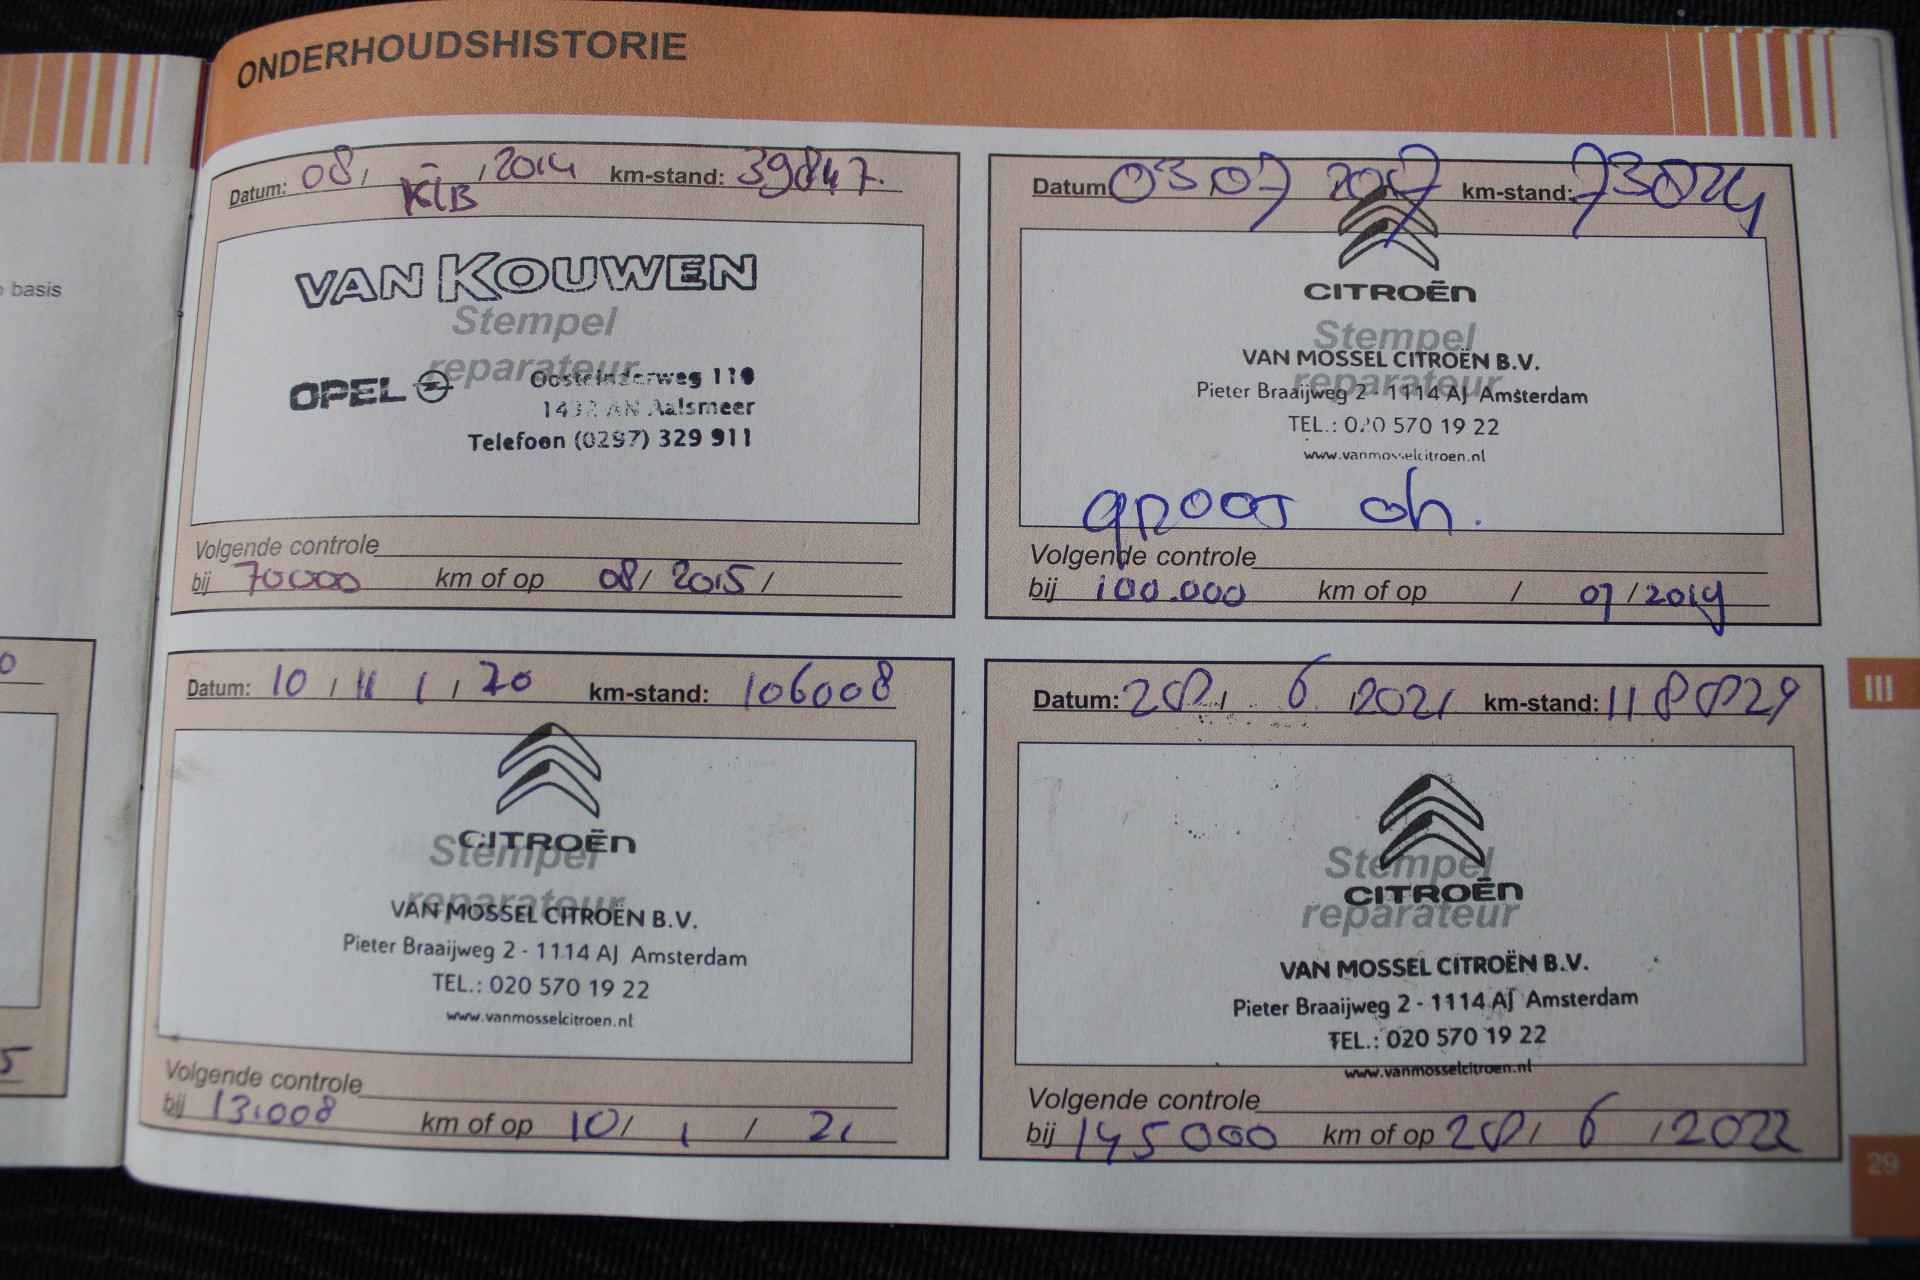 ONDERHOUDSHISTORIE
basis
Datum: 08, , 2014 km-stand: 39847.
KLB
VAN KOUWEN
Stempel
reparateur
OPEL
Oosteinderweg 110
1432 AN Aalsmeer
Telefoon (0297) 329 911
Volgende controle
bij 70000 km of op 08/2015/
Datum 03.07 2017 km-stand: 73024
CITROËN
Stempel
VAN MOSSEL CITROËN B.V.
reparateur
Pieter Braaijweg 2 - 1114 AJ Amsterdam
TEL.: 020 570 19 22
www.vanmosselcitroen.nl
groot oh.
Volgende controle
bij 100.000 km of op / 07/2019
Datum: 10 / / 20 km-stand: 106008
CITROËN
Stempel
reparateur
VAN MOSSEL CITROËN B.V.
Pieter Braaijweg 2 - 1114 AJ Amsterdam
TEL.: 020 570 19 22
www.vanmosselcitroen.nl
Volgende controle
bij 131.008 km of op 10/ 1 / 21
Datum: 28, 6 , 2021 km-stand: 118829
Stempel
CITROËN
reparateur
VAN MOSSEL CITROËN B.V.
Pieter Braaijweg 2 - 1114 AJ Amsterdam
TEL.: 020 570 19 22
www.vanmosselcitroen.nl
Volgende controle
bij 145000 km of op 28/ 6 /2022
III
29
0
5